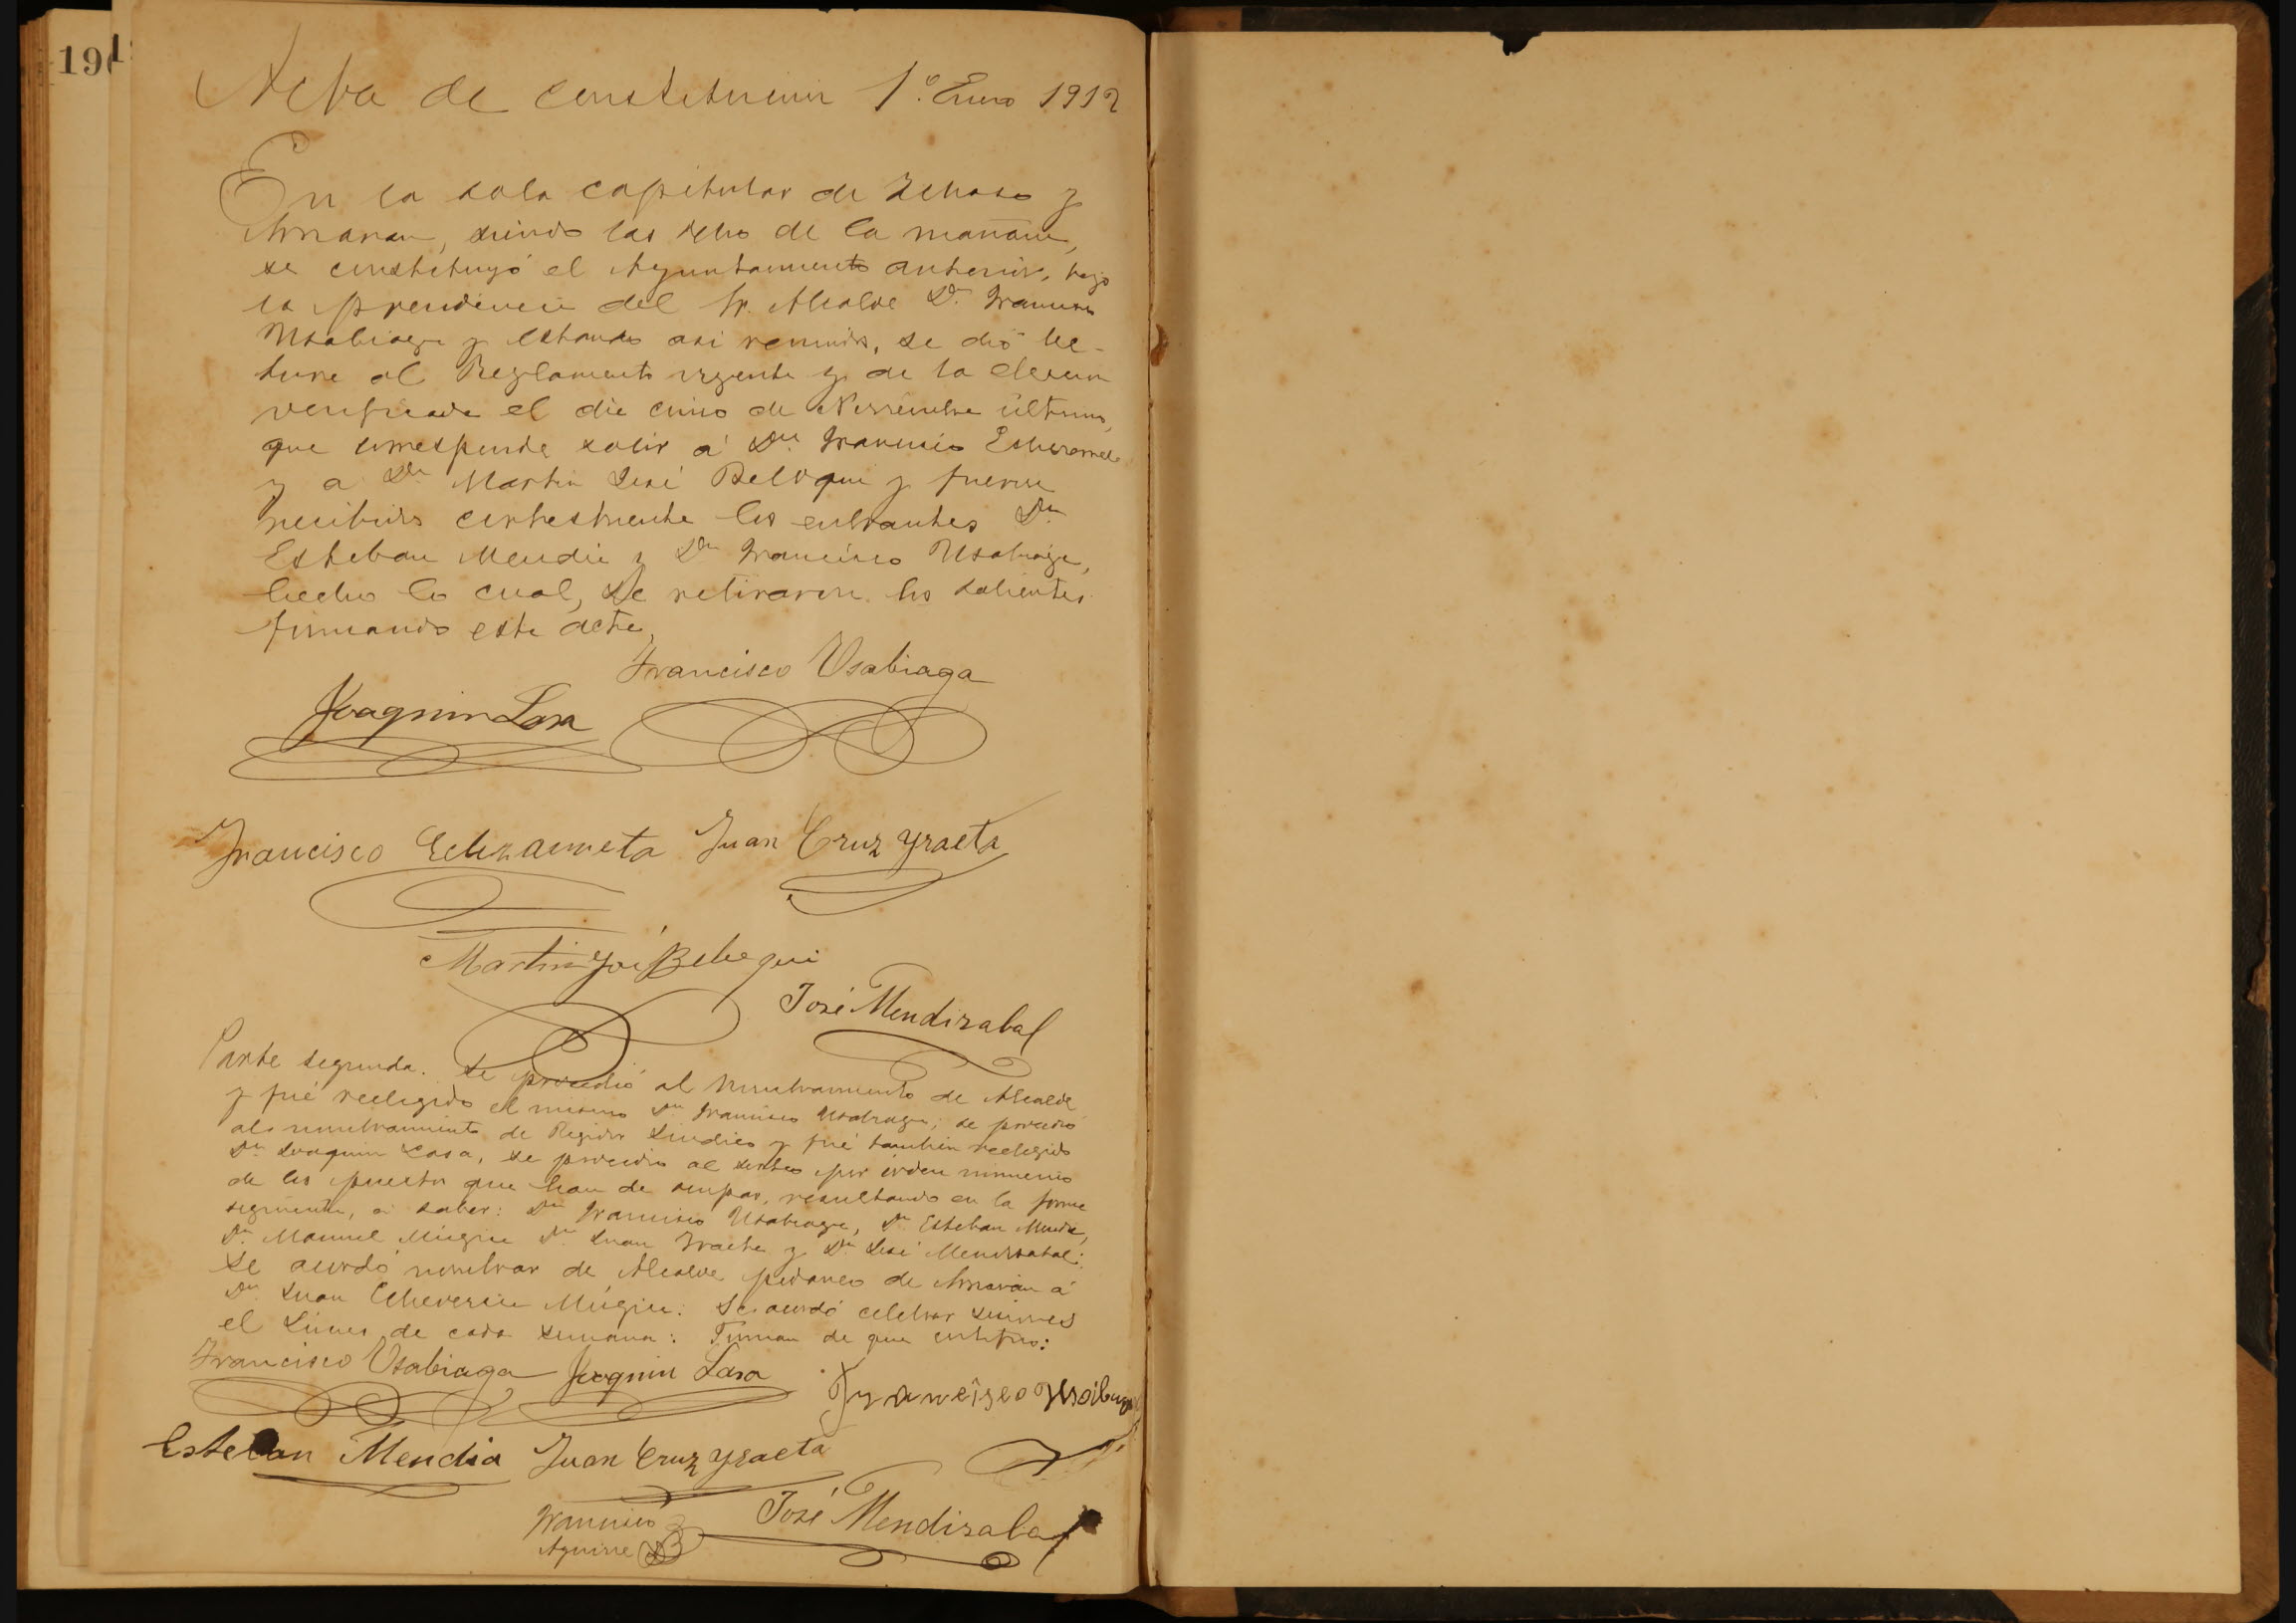 191
Acta de constitucion 1.º Enero 1912
En la sala capitular de Ichaso y
Arriaran, siendo las ocho de la mañana,
se constituyó el Ayuntamiento anterior, bajo
la presidencia del Sr. Alcalde Dn. Francisco
Usabiaga y estando asi reunidos, se dió lec-
tura al Reglamento vigente y de la eleccion
verificada el dia cinco de Noviembre último,
que corresponde salir á Dn. Francisco Echezarreta
y a Dn Martin José Beloqui y fueron
recibidos cortestmente los entrantes Dn
Esteban Mendia y Dn Francisco Usabiaga,
hecho lo cual, se retiraron los salientes
firmando este acta,
Francisco Usabiaga
Joaquin Lasa
Francisco Echezarreta Juan Cruz Yraeta
Martin José Beloqui
José Mendizabal
Parte segunda. Se procedió al nombramiento de Alcalde
y fué reeligido el mismo Dn Francisco Usabiaga; se procedió
al nombramiento de Regidor Sindico y fué tambien reelegido
Dn Joaquin Lasa, se procedio al sorteo por órden numerico
de los puestos que han de ocupar, resultando en la forma
siguiente, a saber: Dn Francisco Usabiaga, Dn Esteban Mendia,
Dn Manuel Múgica Dn Juan Iraeta y Dn José Mendizabal:
Se acordó nombrar de Alcalde pedaneo de Arriaran á
Dn Juan Echeverria Múgica: Se acordó celebrar sesiones
el Lunes de cada semana: Firman de que certifico:
Francisco Usabiaga Joaquin Lasa Francisco Usabiaga
Esteban Mendia Juan Cruz Yraeta
Francisco José Mendizabal
Aguirre